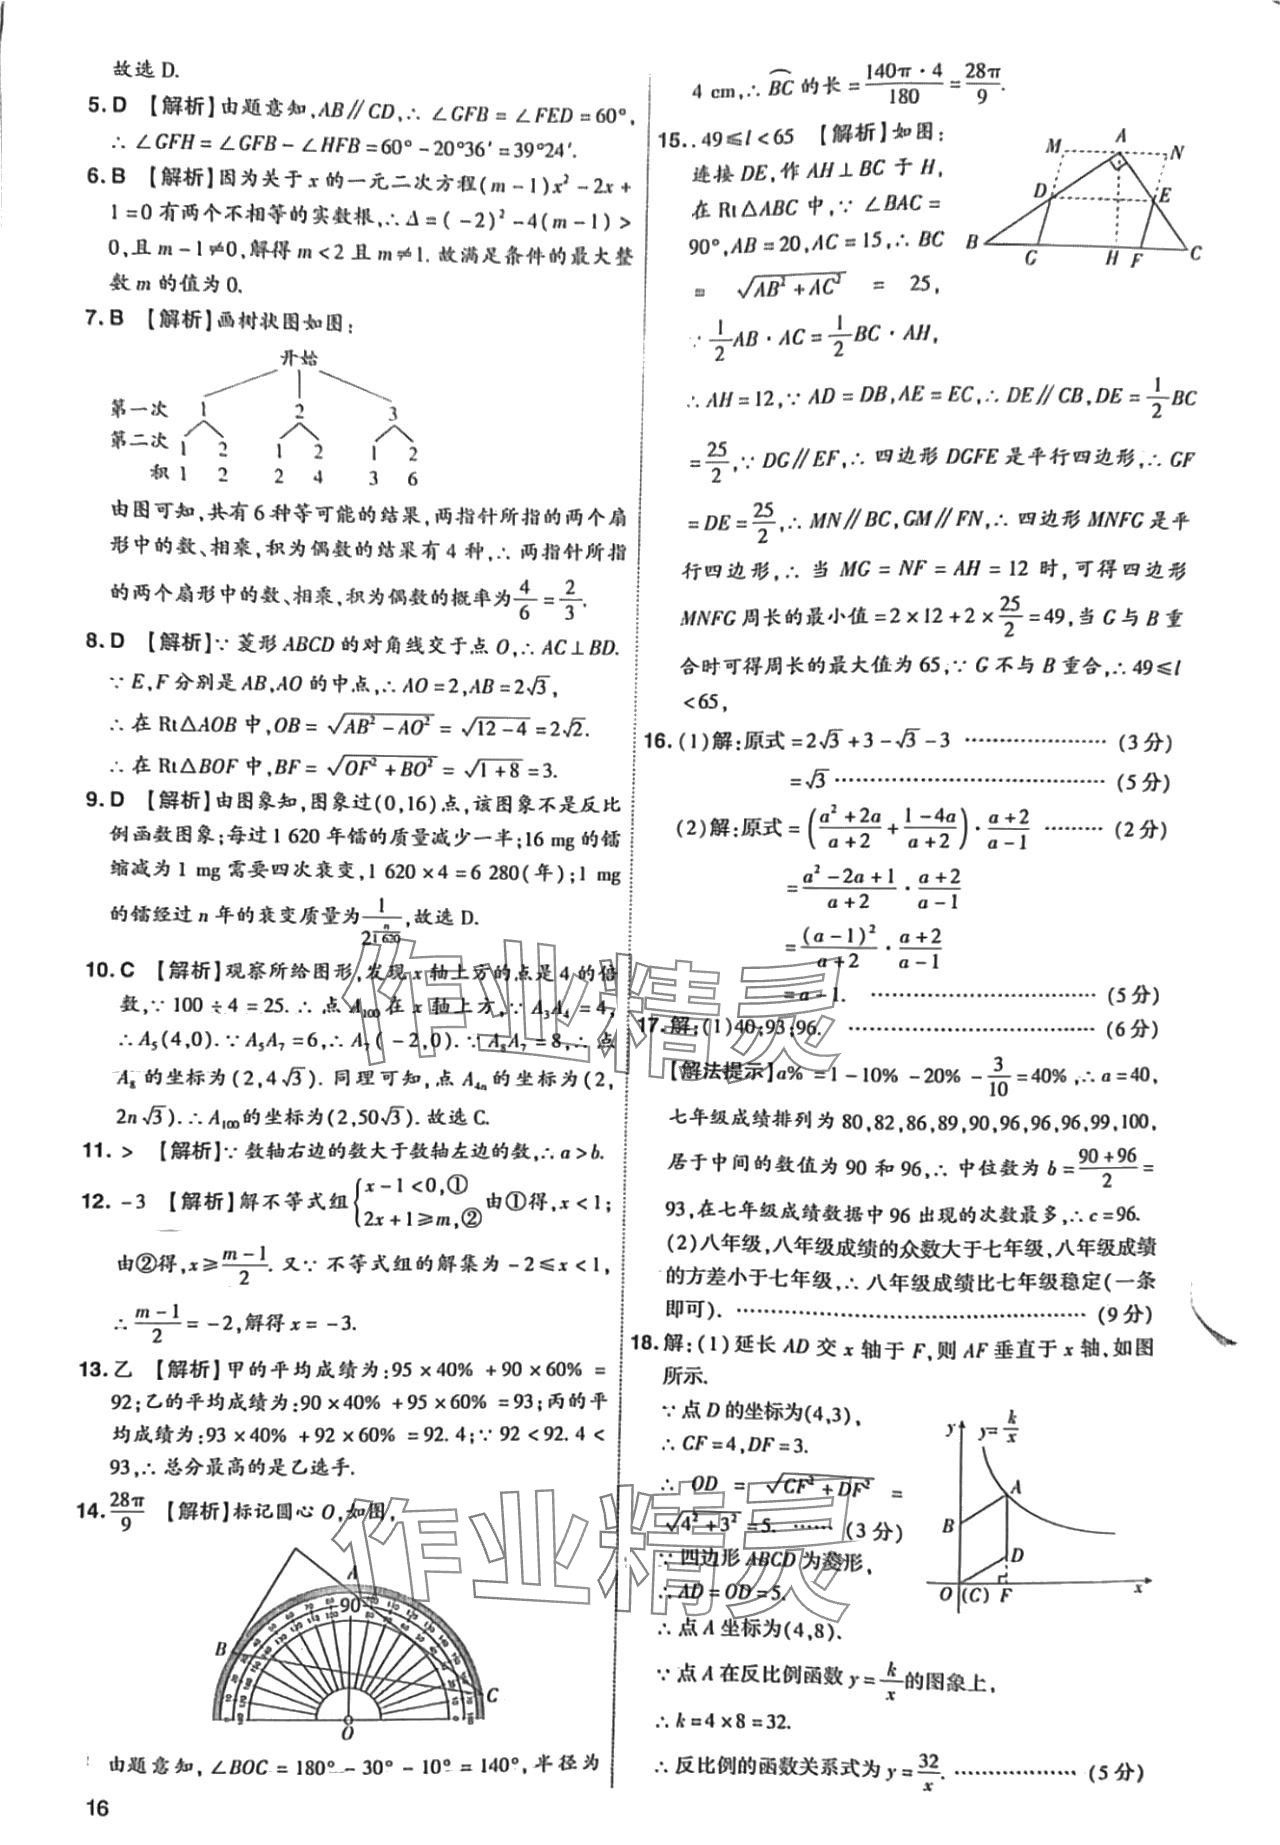 故选 D.
5. D 【解析】由题意知,AB∥CD,∴ ∠GFB = ∠FED = 60°,
∴ ∠GFH = ∠GFB - ∠HFB = 60° - 20°36′ = 39°24′.
6. B 【解析】因为关于 x 的一元二次方程(m-1)x² - 2x +
1 = 0 有两个不相等的实数根,∴ Δ = (-2)² - 4(m-1) >
0,且 m-1≠0,解得 m<2 且 m≠1. 故满足条件的最大整
数 m 的值为 0.
7. B 【解析】画树状图如图:
开始
第一次 1 2 3
第二次 1 2 1 2 1 2
积 1 2 2 4 3 6
由图可知,共有 6 种等可能的结果,两指针所指的两个扇
形中的数、相乘,积为偶数的结果有 4 种,∴ 两指针所指
的两个扇形中的数、相乘,积为偶数的概率为 4/6 = 2/3.
8. D 【解析】∵ 菱形 ABCD 的对角线交于点 O,∴ AC⊥BD.
∵ E,F 分别是 AB,AO 的中点,∴ AO = 2,AB = 2√3,
∴ 在 Rt△AOB 中,OB = √(AB² - AO²) = √(12-4) = 2√2.
∴ 在 Rt△BOF 中,BF = √(OF² + BO²) = √(1+8) = 3.
9. D 【解析】由图象知,图象过(0,16)点,该图象不是反比
例函数图象;每过 1 620 年镭的质量减少一半;16 mg 的镭
缩减为 1 mg 需要四次衰变,1 620 × 4 = 6 280(年);1 mg
的镭经过 n 年的衰变质量为 1/2^(n/1 620),故选 D.
10. C 【解析】观察所给图形,发现 x 轴上方的点是 4 的倍
数,∵ 100 ÷ 4 = 25. ∴ 点 A₁₀₀ 在 x 轴上方,∵ A₃A₄ = 4,
∴ A₅(4,0). ∵ A₅A₇ = 6,∴ A₇(-2,0). ∵ A₈A₇ = 8,∴ 点
A₈ 的坐标为(2,4√3). 同理可知,点 A₄ₙ 的坐标为(2,
2n√3). ∴ A₁₀₀ 的坐标为(2,50√3). 故选 C.
11. > 【解析】∵ 数轴右边的数大于数轴左边的数,∴ a > b.
12. -3 【解析】解不等式组 {x-1<0,① 2x+1≥m,② 由①得,x<1;
由②得,x≥(m-1)/2. 又∵ 不等式组的解集为 -2≤x<1,
∴ (m-1)/2 = -2,解得 x = -3.
13. 乙 【解析】甲的平均成绩为:95 × 40% + 90 × 60% =
92;乙的平均成绩为:90 × 40% + 95 × 60% = 93;丙的平
均成绩为:93 × 40% + 92 × 60% = 92.4;∵ 92 < 92.4 <
93,∴ 总分最高的是乙选手.
14. 28π/9 【解析】标记圆心 O,如图,
A
90
B
C
O
由题意知,∠BOC = 180° - 30° - 10° = 140°,半径为
16
4 cm,∴ BC⌒ 的长 = (140π·4)/180 = 28π/9.
15. .49≤l<65 【解析】如图:
连接 DE,作 AH⊥BC 于 H,
在 Rt△ABC 中,∵ ∠BAC =
90°,AB = 20,AC = 15,∴ BC
= √(AB² + AC²) = 25,
M A N
D E
B G H F C
∵ 1/2 AB·AC = 1/2 BC·AH,
∴ AH = 12,∵ AD = DB,AE = EC,∴ DE∥CB,DE = 1/2 BC
= 25/2,∵ DG∥EF,∴ 四边形 DGFE 是平行四边形,∴ GF
= DE = 25/2,∴ MN∥BC,GM∥FN,∴ 四边形 MNFG 是平
行四边形,∴ 当 MG = NF = AH = 12 时,可得四边形
MNFG 周长的最小值 = 2×12 + 2×25/2 = 49,当 G 与 B 重
合时可得周长的最大值为 65,∵ G 不与 B 重合,∴ 49≤l
<65,
16. (1)解:原式 = 2√3 + 3 - √3 - 3 ………………… (3 分)
= √3 ………………………………… (5 分)
(2)解:原式 = ((a²+2a)/(a+2) + (1-4a)/(a+2))·(a+2)/(a-1) ……… (2 分)
= (a²-2a+1)/(a+2)·(a+2)/(a-1)
= (a-1)²/(a+2)·(a+2)/(a-1)
= a-1. …………………………… (5 分)
17. 解:(1)40;93;96. ……………………………… (6 分)
【解法提示】a% = 1 - 10% - 20% - 3/10 = 40%,∴ a = 40,
七年级成绩排列为 80,82,86,89,90,96,96,96,99,100,
居于中间的数值为 90 和 96,∴ 中位数为 b = (90+96)/2 =
93,在七年级成绩数据中 96 出现的次数最多,∴ c = 96.
(2)八年级,八年级成绩的众数大于七年级,八年级成绩
的方差小于七年级,∴ 八年级成绩比七年级稳定(一条
即可). …………………………………………… (9 分)
18. 解:(1)延长 AD 交 x 轴于 F,则 AF 垂直于 x 轴,如图
所示.
∵ 点 D 的坐标为(4,3),
∴ CF = 4,DF = 3.
∴ OD = √(CF² + DF²) =
√(4²+3²) = 5. …… (3 分)
∵ 四边形 ABCD 为菱形,
∴ AD = OD = 5.
∴ 点 A 坐标为(4,8).
y y=k/x
A
B
D
O (C) F x
∵ 点 A 在反比例函数 y = k/x 的图象上,
∴ k = 4×8 = 32.
∴ 反比例的函数关系式为 y = 32/x. ……………… (5 分)
作业精灵
作业精灵